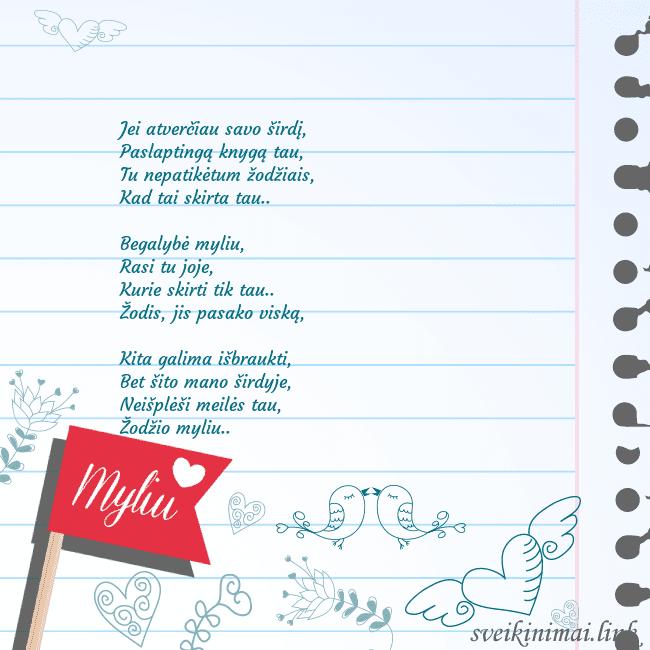 Jei atverčiau savo širdį,
Paslaptingą knygą tau,
Tu nepatikėtum žodžiais,
Kad tai skirta tau..
Begalybė myliu,
Rasi tu joje,
Kurie skirti tik tau..
Žodis, jis pasako viską,
Kita galima išbraukti,
Bet šito mano širdyje,
Neišplėši meilės tau,
Žodžio myliu..
Myliu
sveikinimai.link